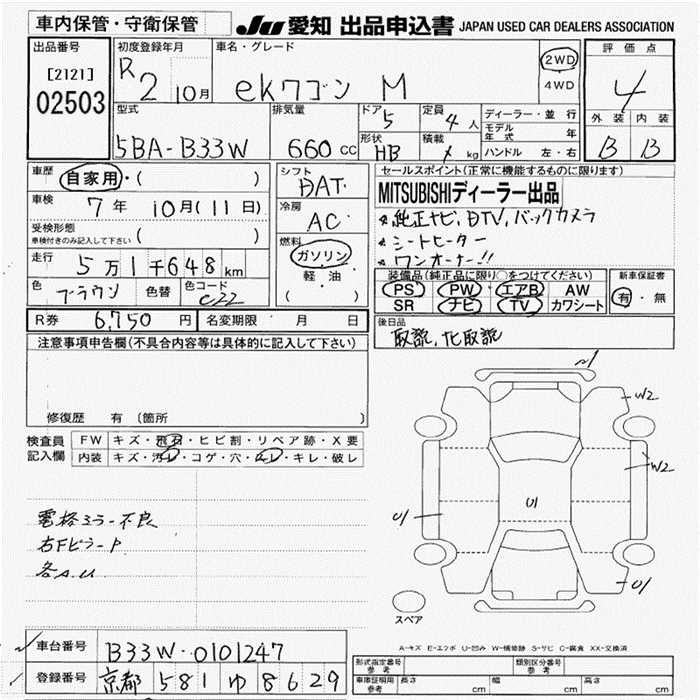 車内保管・守衛保管
JU 愛知 出品申込書 JAPAN USED CAR DEALERS ASSOCIATION
出品番号
[2121]
02503
初度登録年月
R2 10月
車名・グレード
ekワゴン M
2WD
4WD
評価点
4
外装 内装
B B
型式
5BA-B33W
排気量
660 cc
ドア
5
形状
HB
定員
4人
積載
kg
ディーラー・並行
モデル年式 年
ハンドル 左・右
車歴
自家用・( )
車検 7年 10月(11日)
受検形態
車検付きのみ記入して下さい ( )
走行 5万1千648km
色 ブラウン 色替 色コード C22
シフト
DAT
冷房
AC
燃料
ガソリン
軽・油
( )
セールスポイント(正常に機能するものに限ります)
MITSUBISHIディーラー出品
純正ナビ、DTV、バックカメラ
シートヒーター
ワンオーナー!!
装備品(純正品に限り○をつけてください)
PS PW エアB AW
SR ナビ TV カワシート
新車保証書
有・無
R券 6,750円 名変期限 ・ 月 日
後日品
取説、ナビ取説
注意事項申告欄(不具合内容等は具体的に記入して下さい)
修復歴 有 (箇所 )
検査員
記入欄
FW キズ・飛石・ヒビ割・リペア跡・X要
内装 キズ・汚レ・コゲ・穴・スレ・キレ・破レ
電格ミラー不良
右Fピラー P
各A.U
W2
W2
U1
U1
U1
スペア
A-キズ E-エクボ U-凹み W-補修跡 S-サビ C-腐食 XX-交換済
車台番号 B33W-0101247
登録番号 京都 581 ゆ 8629
形式指定番号 参考
類別区分番号 参考
車庫証明用 参考 長さ cm 幅 cm 高さ cm